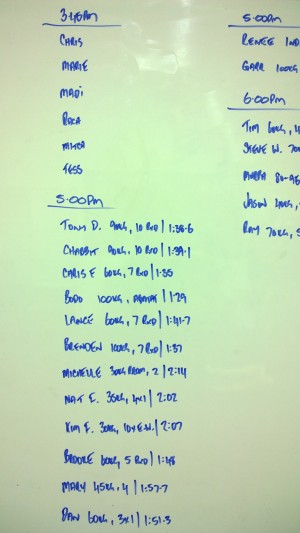 3:45pm
CHRIS
MARIE
MADI
TESS
5:00pm
TONY D. 90KG, 10 RND | 1:38.6
CHABBIT 90KG, 10 RND | 1:39.1
CHRIS F 60KG, 7 RND | 1:35
BODO 100KG, | 1:29
LANCE 60KG, 7 RND | 1:41.7
BRENDEN 100KG, 7 RND | 1:37
MICHELLE 30KG, 2 | 2:14
NAT E. 35KG, 4x1 | 2:02
KIM F. 30KG, | 2:07
BROOKE 60KG, 5 RND | 1:48
MARY 45KG, 4 | 1:57.7
DAN 60KG, 3x1 | 1:51.3
5:00pm
RENEE IND
GARR 100KG
6:00pm
TIM 60KG,
STEVE W. 70
80-95
JASON 40KG,
RAY 70KG, 5